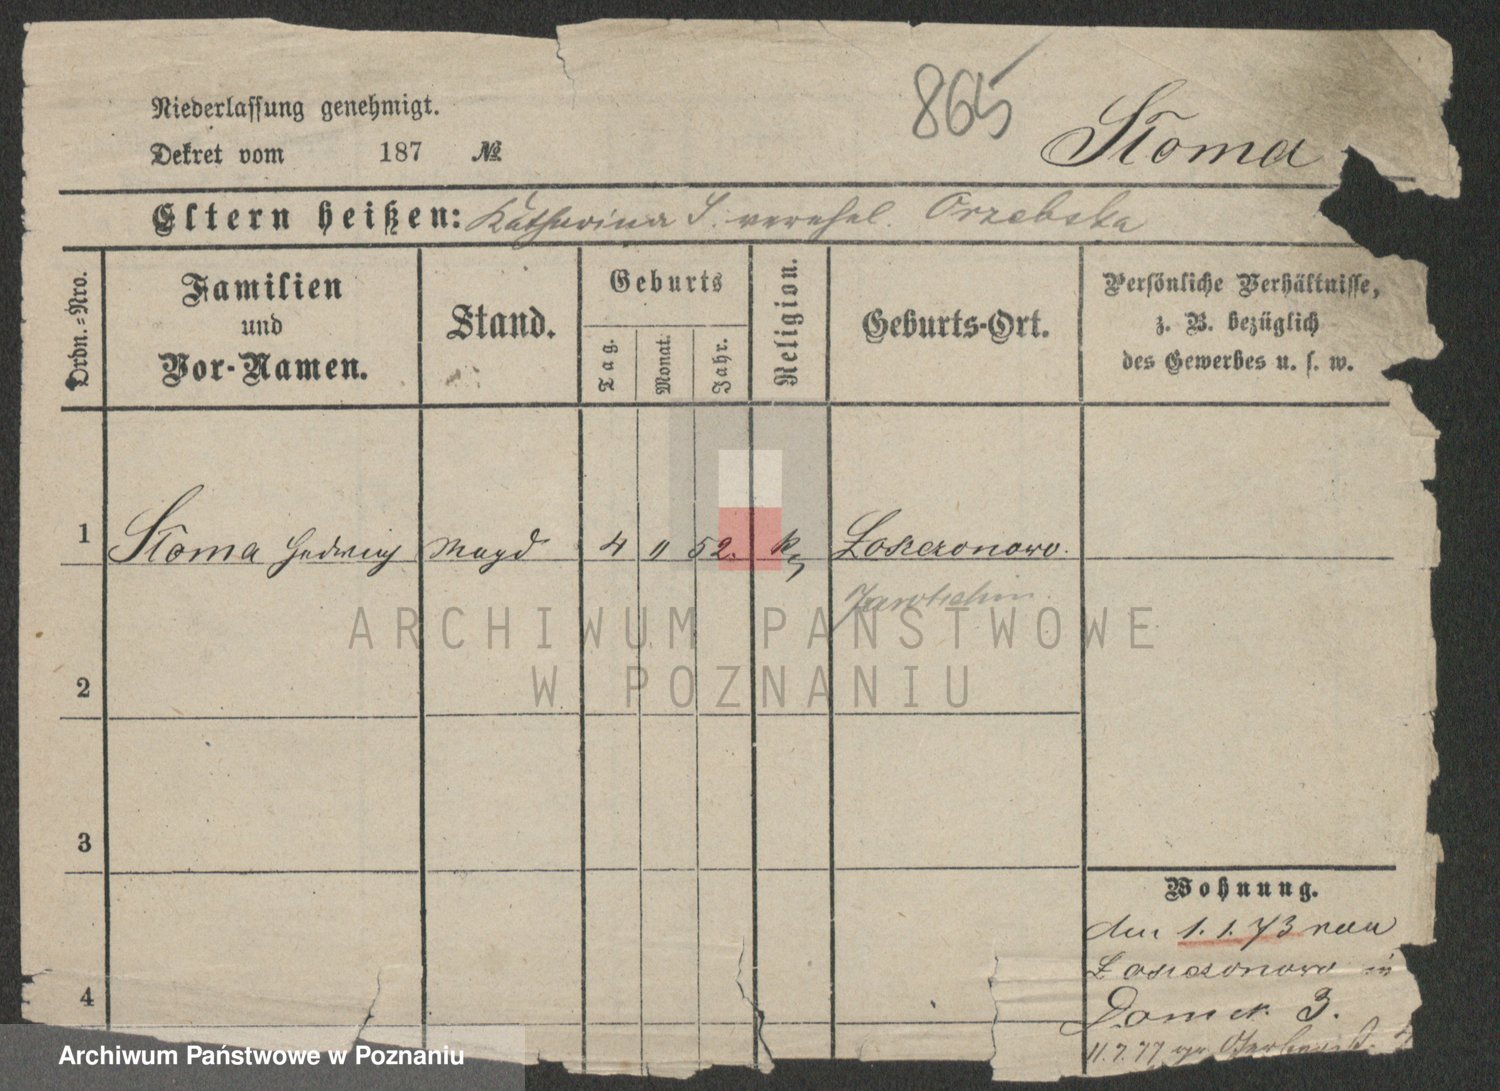 Niederlassung genehmigt.
865
Dekret vom 187 №
Słoma
Eltern heißen: Katharina S. verehel. Orzebska
Ordn.=Nro.
Familien
und
Vor-Namen.
Stand.
Geburts
Tag.
Monat.
Jahr.
Religion.
Geburts-Ort.
Persönliche Verhältnisse,
z. B. bezüglich
des Gewerbes u. s. w.
1 Słoma Hedwig Magd 4 11 52. k
Jarotschin
2
3
4
Wohnung.
den 1.1.73 von
in
3.
11.7.77
ARCHIWUM PAŃSTWOWE
W POZNANIU
Archiwum Państwowe w Poznaniu